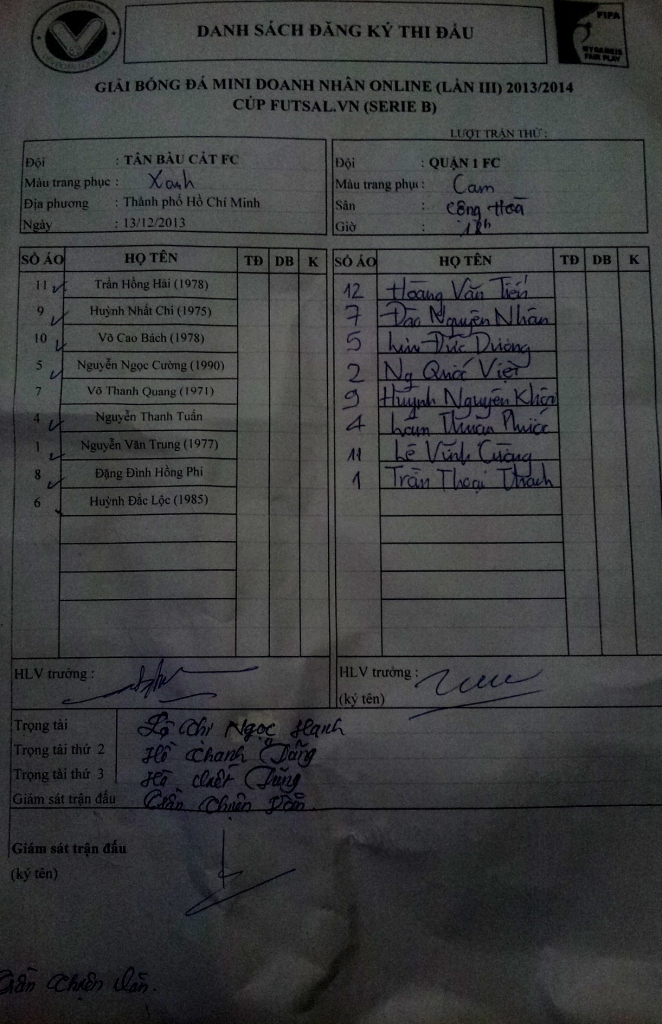 DANH SÁCH ĐĂNG KÝ THI ĐẤU
FIFA
GIẢI BÓNG ĐÁ MINI DOANH NHÂN ONLINE (LẦN III) 2013/2014
CÚP FUTSAL.VN (SERIE B)
LƯỢT TRẬN THỨ :
Đội : TÂN BÀU CÁT FC
Màu trang phục : Xanh
Địa phương : Thành phố Hồ Chí Minh
Ngày : 13/12/2013
Đội : QUẬN 1 FC
Màu trang phục : Cam
Sân : Cộng Hoà
Giờ :
SỐ ÁO HỌ TÊN TĐ DB K
11 Trần Hồng Hải (1978)
9 Huỳnh Nhất Chi (1975)
10 Võ Cao Bách (1978)
5 Nguyễn Ngọc Cường (1990)
7 Võ Thanh Quang (1971)
4 Nguyễn Thanh Tuấn
1 Nguyễn Văn Trung (1977)
8 Đặng Đình Hồng Phi
6 Huỳnh Đắc Lộc (1985)
SỐ ÁO HỌ TÊN TĐ DB K
12 Hoàng Văn Tiến
7 Đào Nguyên Nhân
5 Lưu Đức Dương
2 Ng Quốc Việt
9 Huỳnh Nguyên Khôi
4 Thuận Phước
11 Lê Vĩnh Cường
1 Trần Thoại Thạch
HLV trưởng :
HLV trưởng :
(ký tên)
Trọng tài Ngọc Hạnh
Trọng tài thứ 2 Hồ Thanh Dũng
Trọng tài thứ 3 Dũng
Giám sát trận đấu Trần Thiện
Giám sát trận đấu
(ký tên)
Trần Thiện